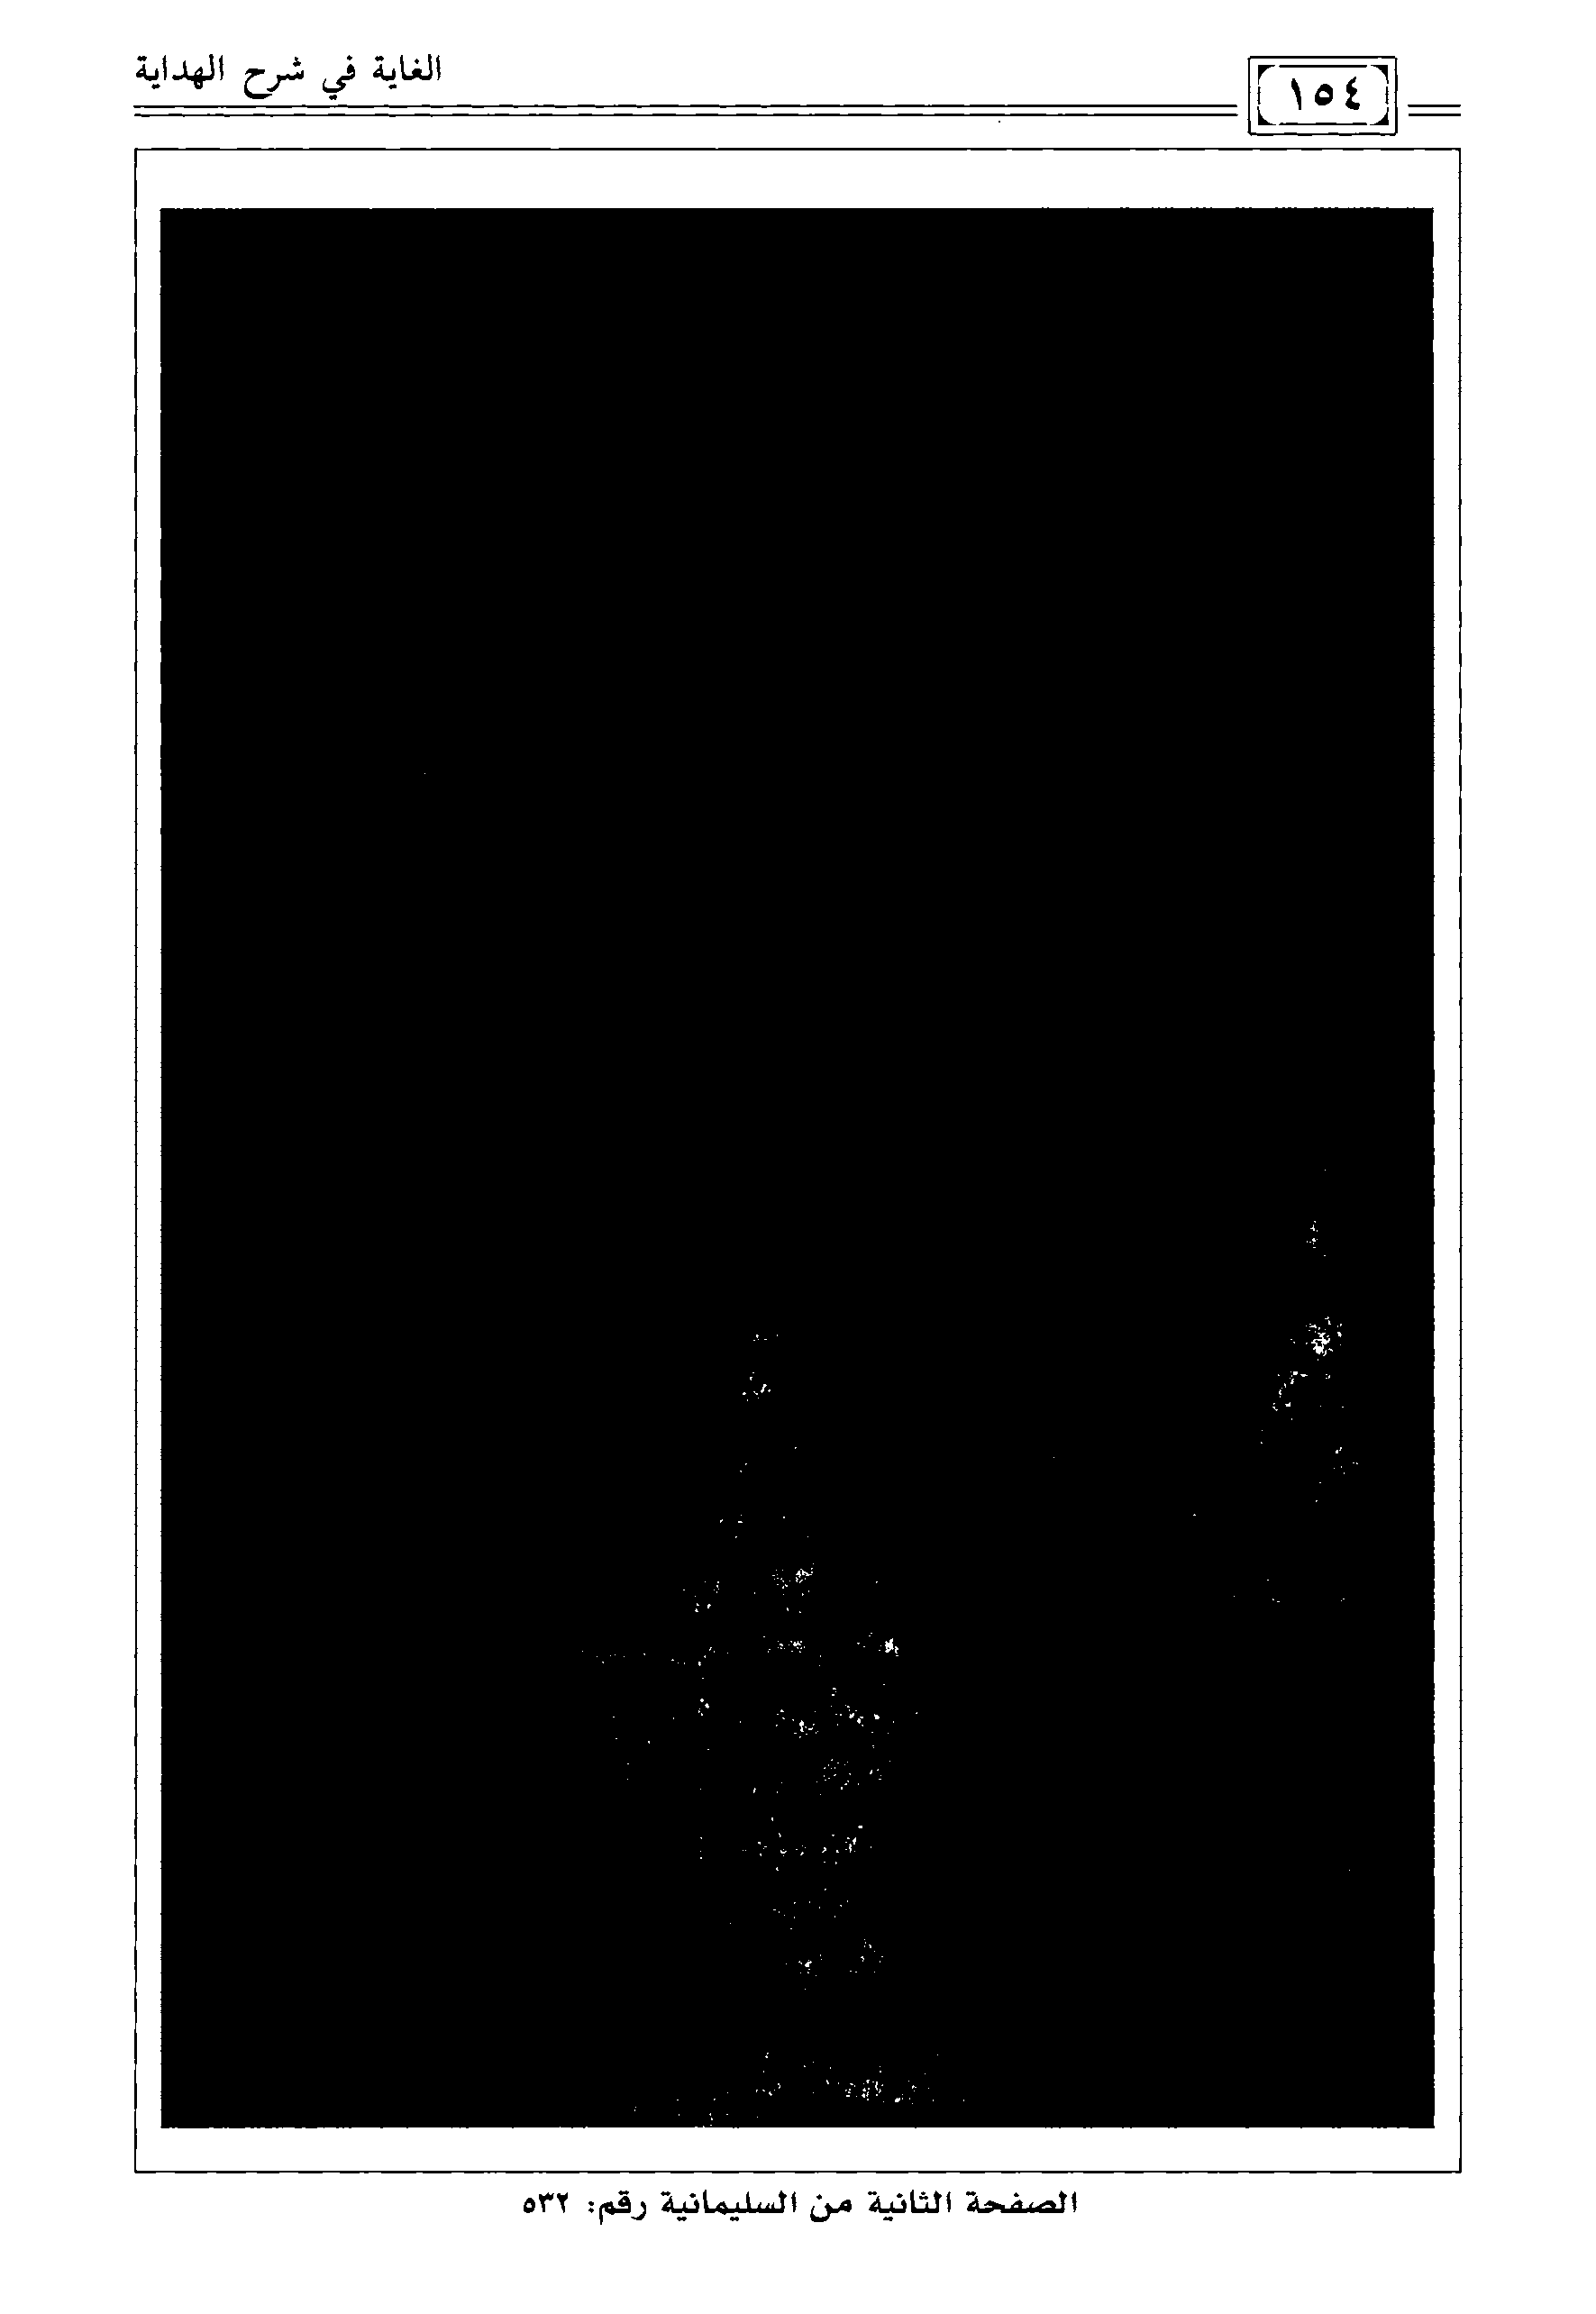 ١٥٤
الغاية في شرح الهداية
الصفحة الثانية من السليمانية رقم: ٥٣٢